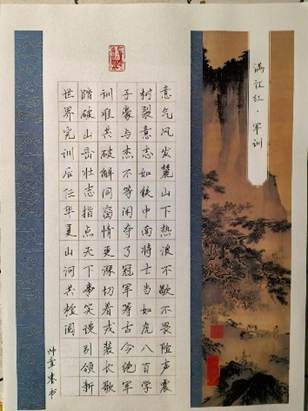 满江红·军训
意气风发麓山下热浪不歇不畏险声震
树裂意志如铁中南将士当如虎八百学
子豪与杰不等闲夺了冠军等古今绝军
训难共破解同窗情更深切着武装长歌
踏破山岳壮志指点天下事笑谈别领新
世界完训后任华夏山河共检阅